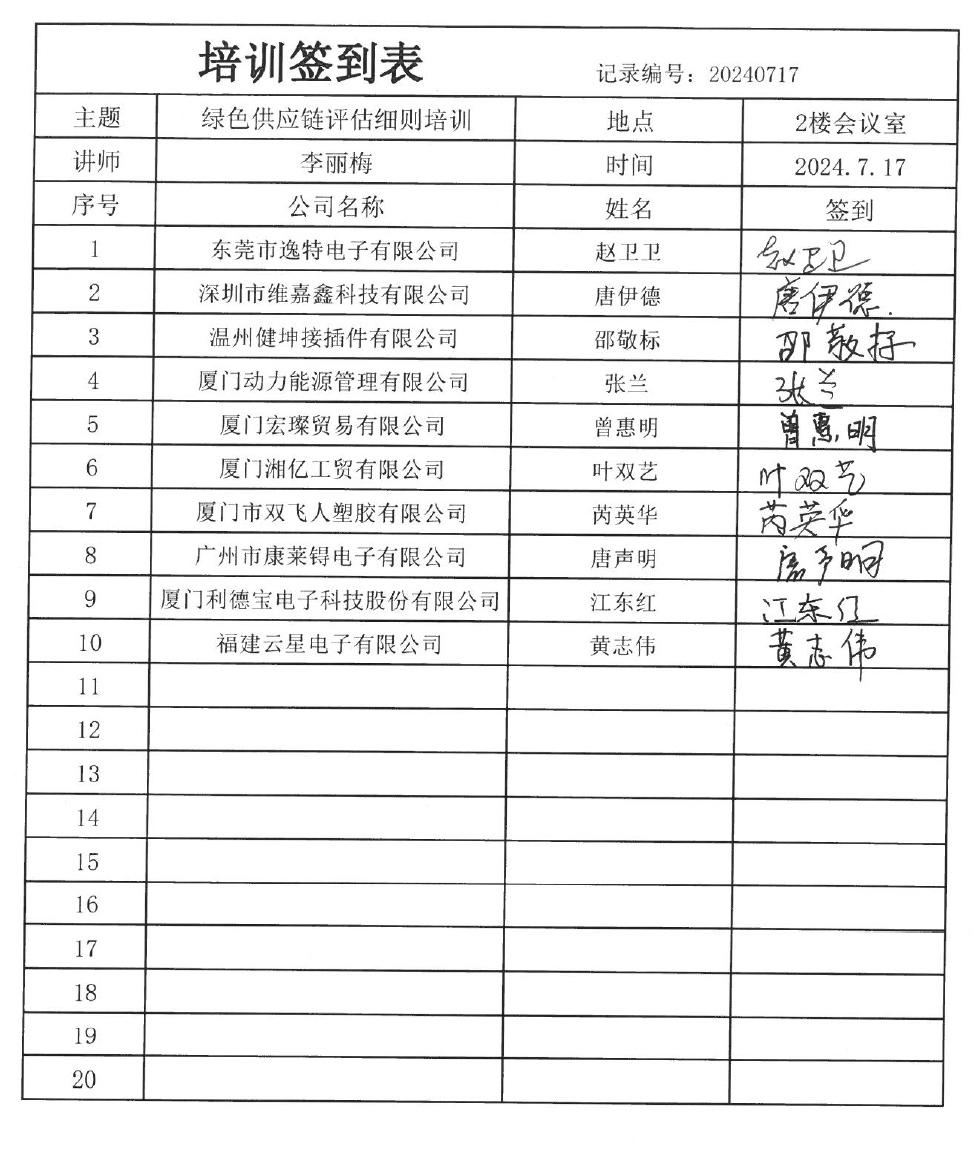 培训签到表 记录编号：20240717
主题 绿色供应链评估细则培训 地点 2楼会议室
讲师 李丽梅 时间 2024.7.17
序号 公司名称 姓名 签到
1 东莞市逸特电子有限公司 赵卫卫 赵卫卫
2 深圳市维嘉鑫科技有限公司 唐伊德 唐伊德.
3 温州健坤接插件有限公司 邵敬标 邵敬标
4 厦门动力能源管理有限公司 张兰 张兰
5 厦门宏璨贸易有限公司 曾惠明 曾惠明
6 厦门湘亿工贸有限公司 叶双艺 叶双艺
7 厦门市双飞人塑胶有限公司 芮英华 芮英华
8 广州市康莱锝电子有限公司 唐声明 唐声明
9 厦门利德宝电子科技股份有限公司 江东红 江东红
10 福建云星电子有限公司 黄志伟 黄志伟
11
12
13
14
15
16
17
18
19
20